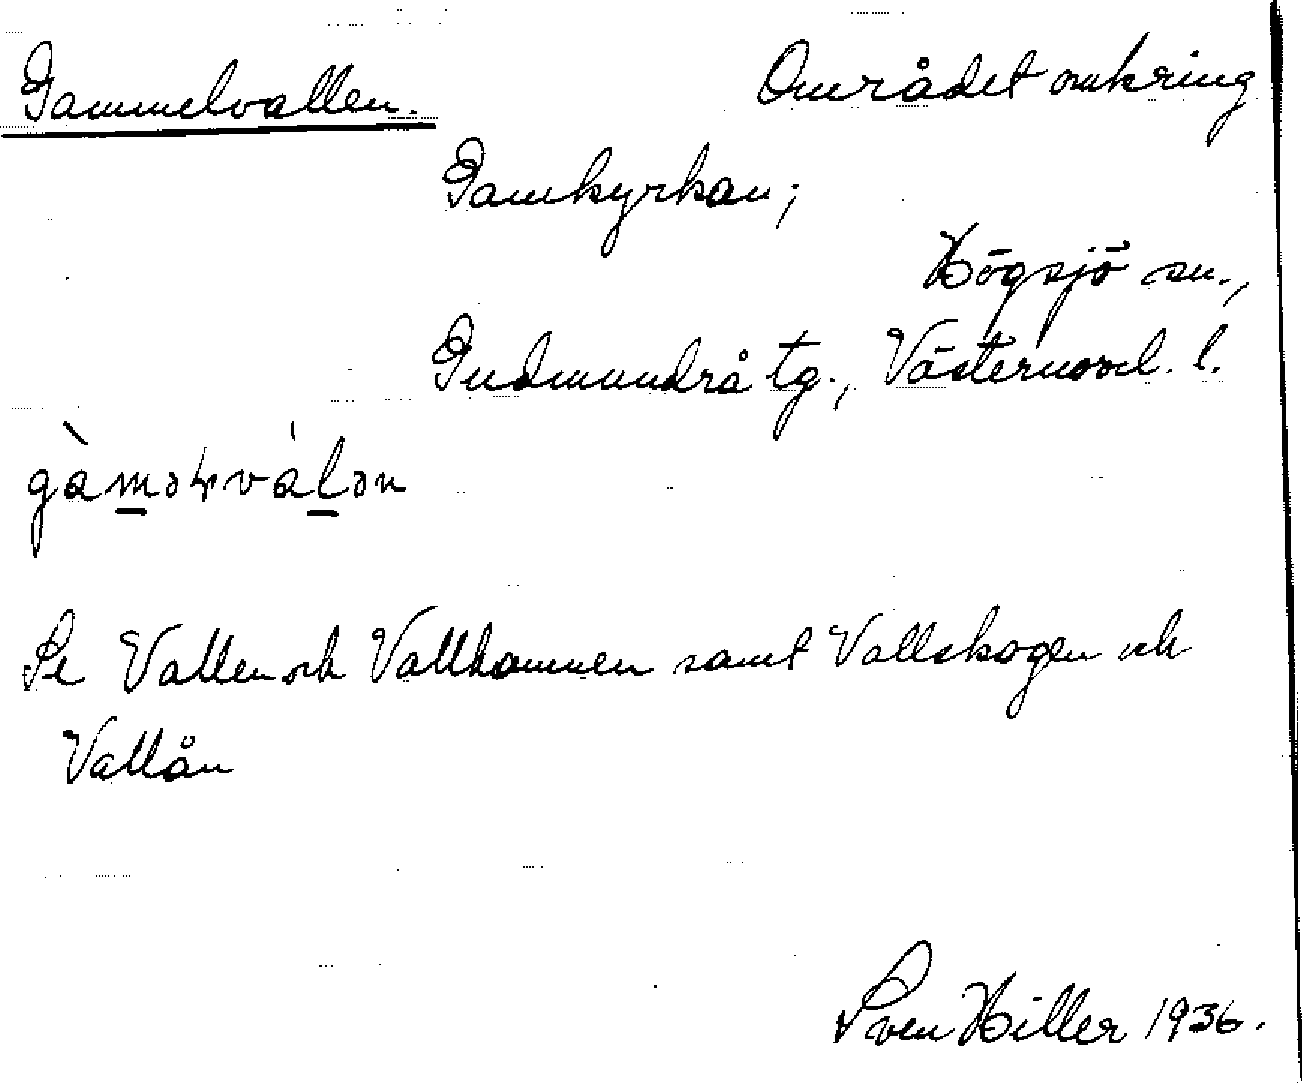 Gammelvallen. Området omkring
Gamkyrkan;
Högsjö sn.,
Gudmundrå tg., Västernorrl. l.
gàməɽválən
Se Vallen och Vallhamnen samt Vallskogen och
Vallån
Sven Hiller 1936.